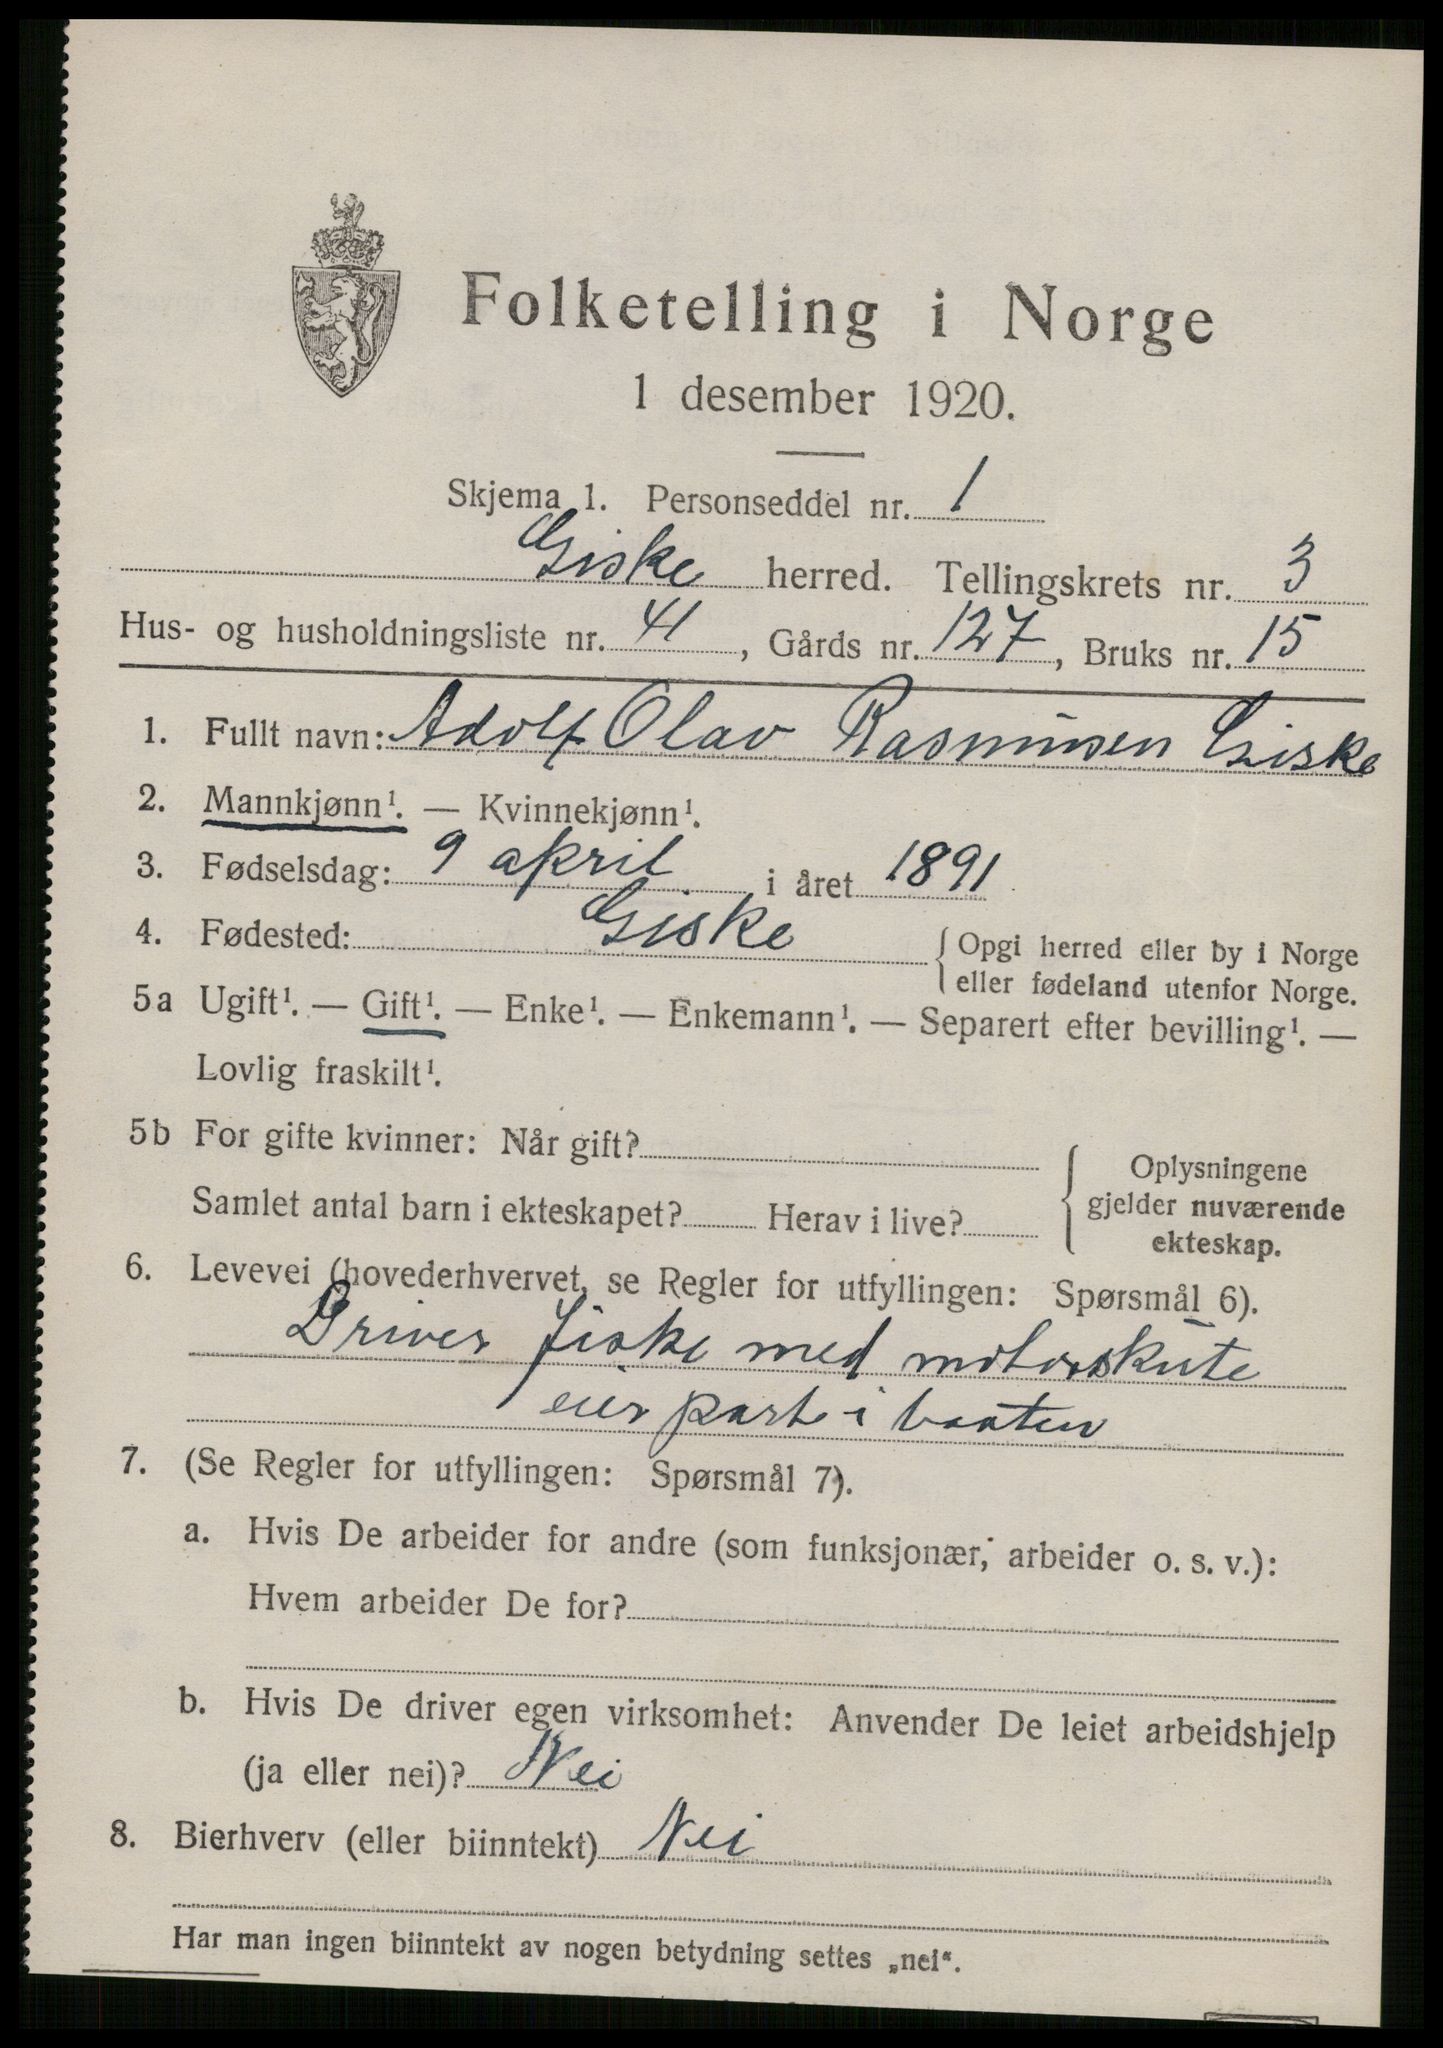 Folketelling i Norge
1 desember 1920.
Skjema 1. Personseddel nr. 1
Giske herred. Tellingskrets nr. 3
Hus- og husholdningsliste nr. 41, Gårds nr. 127, Bruks nr. 15
1. Fullt navn: Adolf Olav Rasmussen Giske
2. Mannkjønn¹. — Kvinnekjønn¹.
3. Fødselsdag: 9 april i året 1891
4. Fødested: Giske { Opgi herred eller by i Norge
eller fødeland utenfor Norge.
5a Ugift¹. — Gift¹. — Enke¹. — Enkemann¹. — Separert efter bevilling¹. —
Lovlig fraskilt¹.
5b For gifte kvinner: Når gift?
Samlet antal barn i ekteskapet? Herav i live?
{ Oplysningene
gjelder nuværende
ekteskap.
6. Levevei (hovederhvervet, se Regler for utfyllingen: Spørsmål 6).
Driver fiske med motorskute
eier part i baaten
7. (Se Regler for utfyllingen: Spørsmål 7).
a. Hvis De arbeider for andre (som funksjonær, arbeider o. s. v.):
Hvem arbeider De for?
b. Hvis De driver egen virksomhet: Anvender De leiet arbeidshjelp
(ja eller nei)? Nei
8. Bierhverv (eller biinntekt) Nei
Har man ingen biinntekt av nogen betydning settes „nei“.